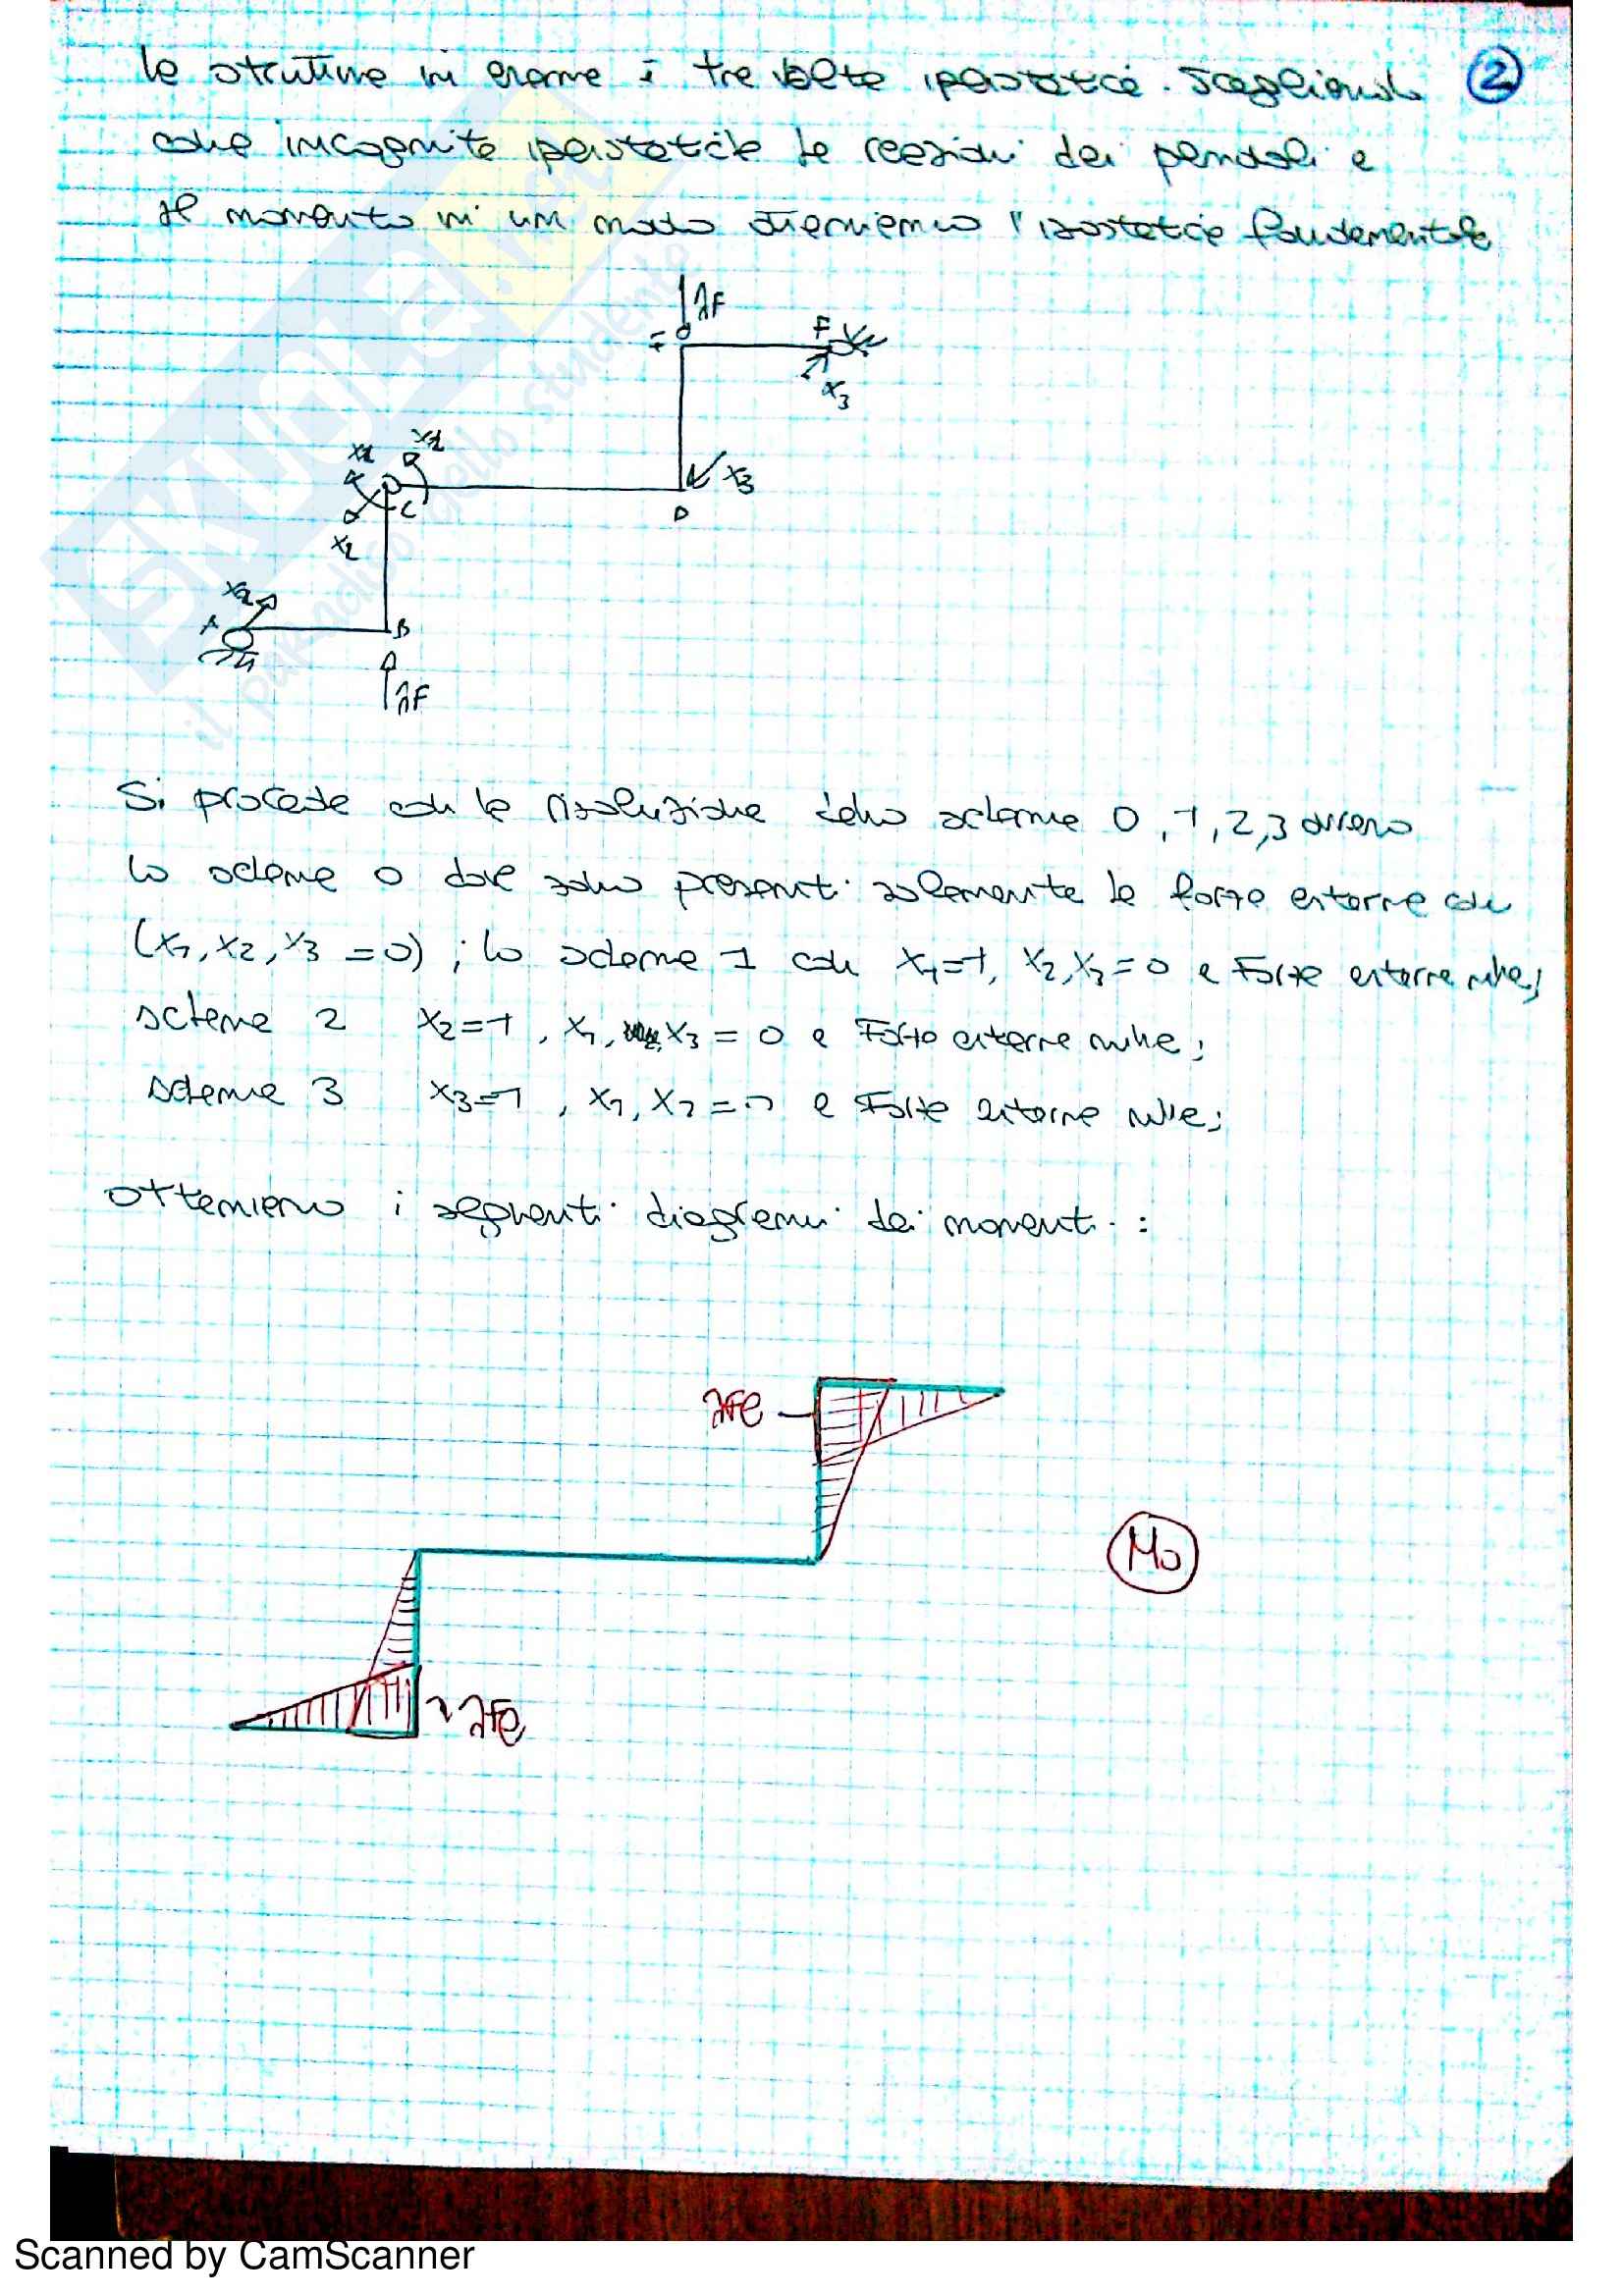 la struttura in esame è tre volte iperstatica. Scegliendo
2
come incognite iperstatiche le reazioni dei pendoli e
il momento in un nodo otteniamo l'isostatica fondamentale
λF
F
x3
x1
x2
x3
C
D
x2
x2
A
B
λF
Si procede con la risoluzione dello schema 0, 1, 2, 3 ovvero
lo schema 0 dove sono presenti solamente le forze esterne con
(x1, x2, x3 = 0) ; lo schema 1 con x1=1, x2, x3 = 0 e Forze esterne nulle;
schema 2 x2=1, x1, x3 = 0 e Forze esterne nulle;
schema 3 x3=1, x1, x2 = 0 e Forze esterne nulle;
otteniamo i seguenti diagrammi dei momenti :
λFl
M0
λFl
SKUOLA.net
il paradiso dello studente
Scanned by CamScanner